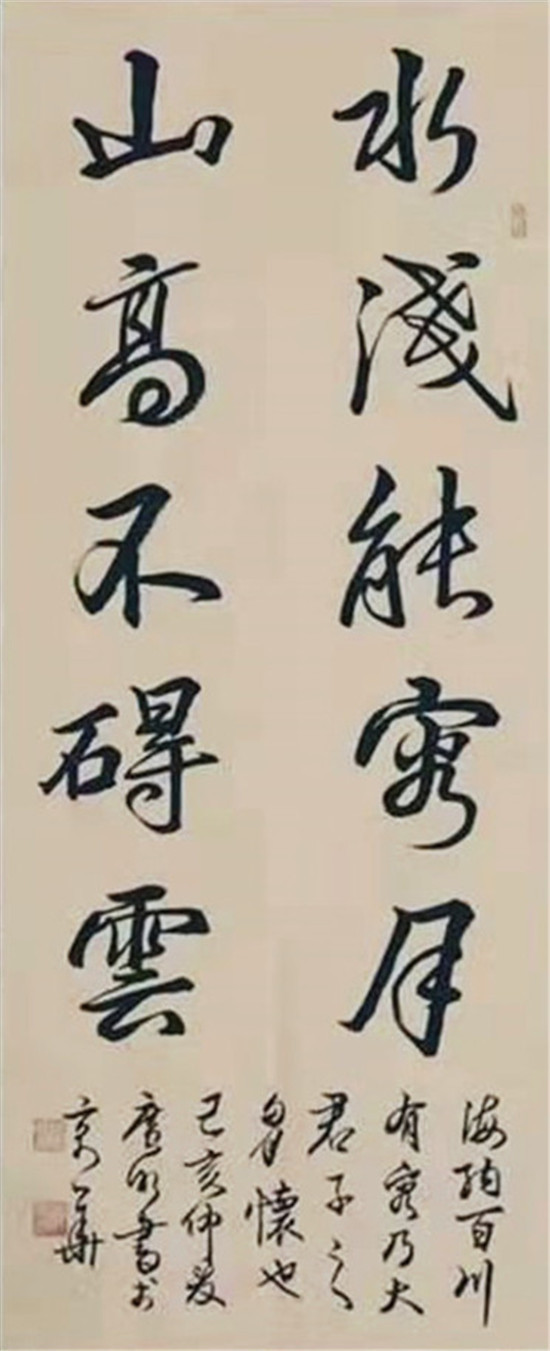 水淺能容月
山高不碍雲
海納百川
有容乃大
君子之
胸懷也
己亥仲夏
唐明書於
京華